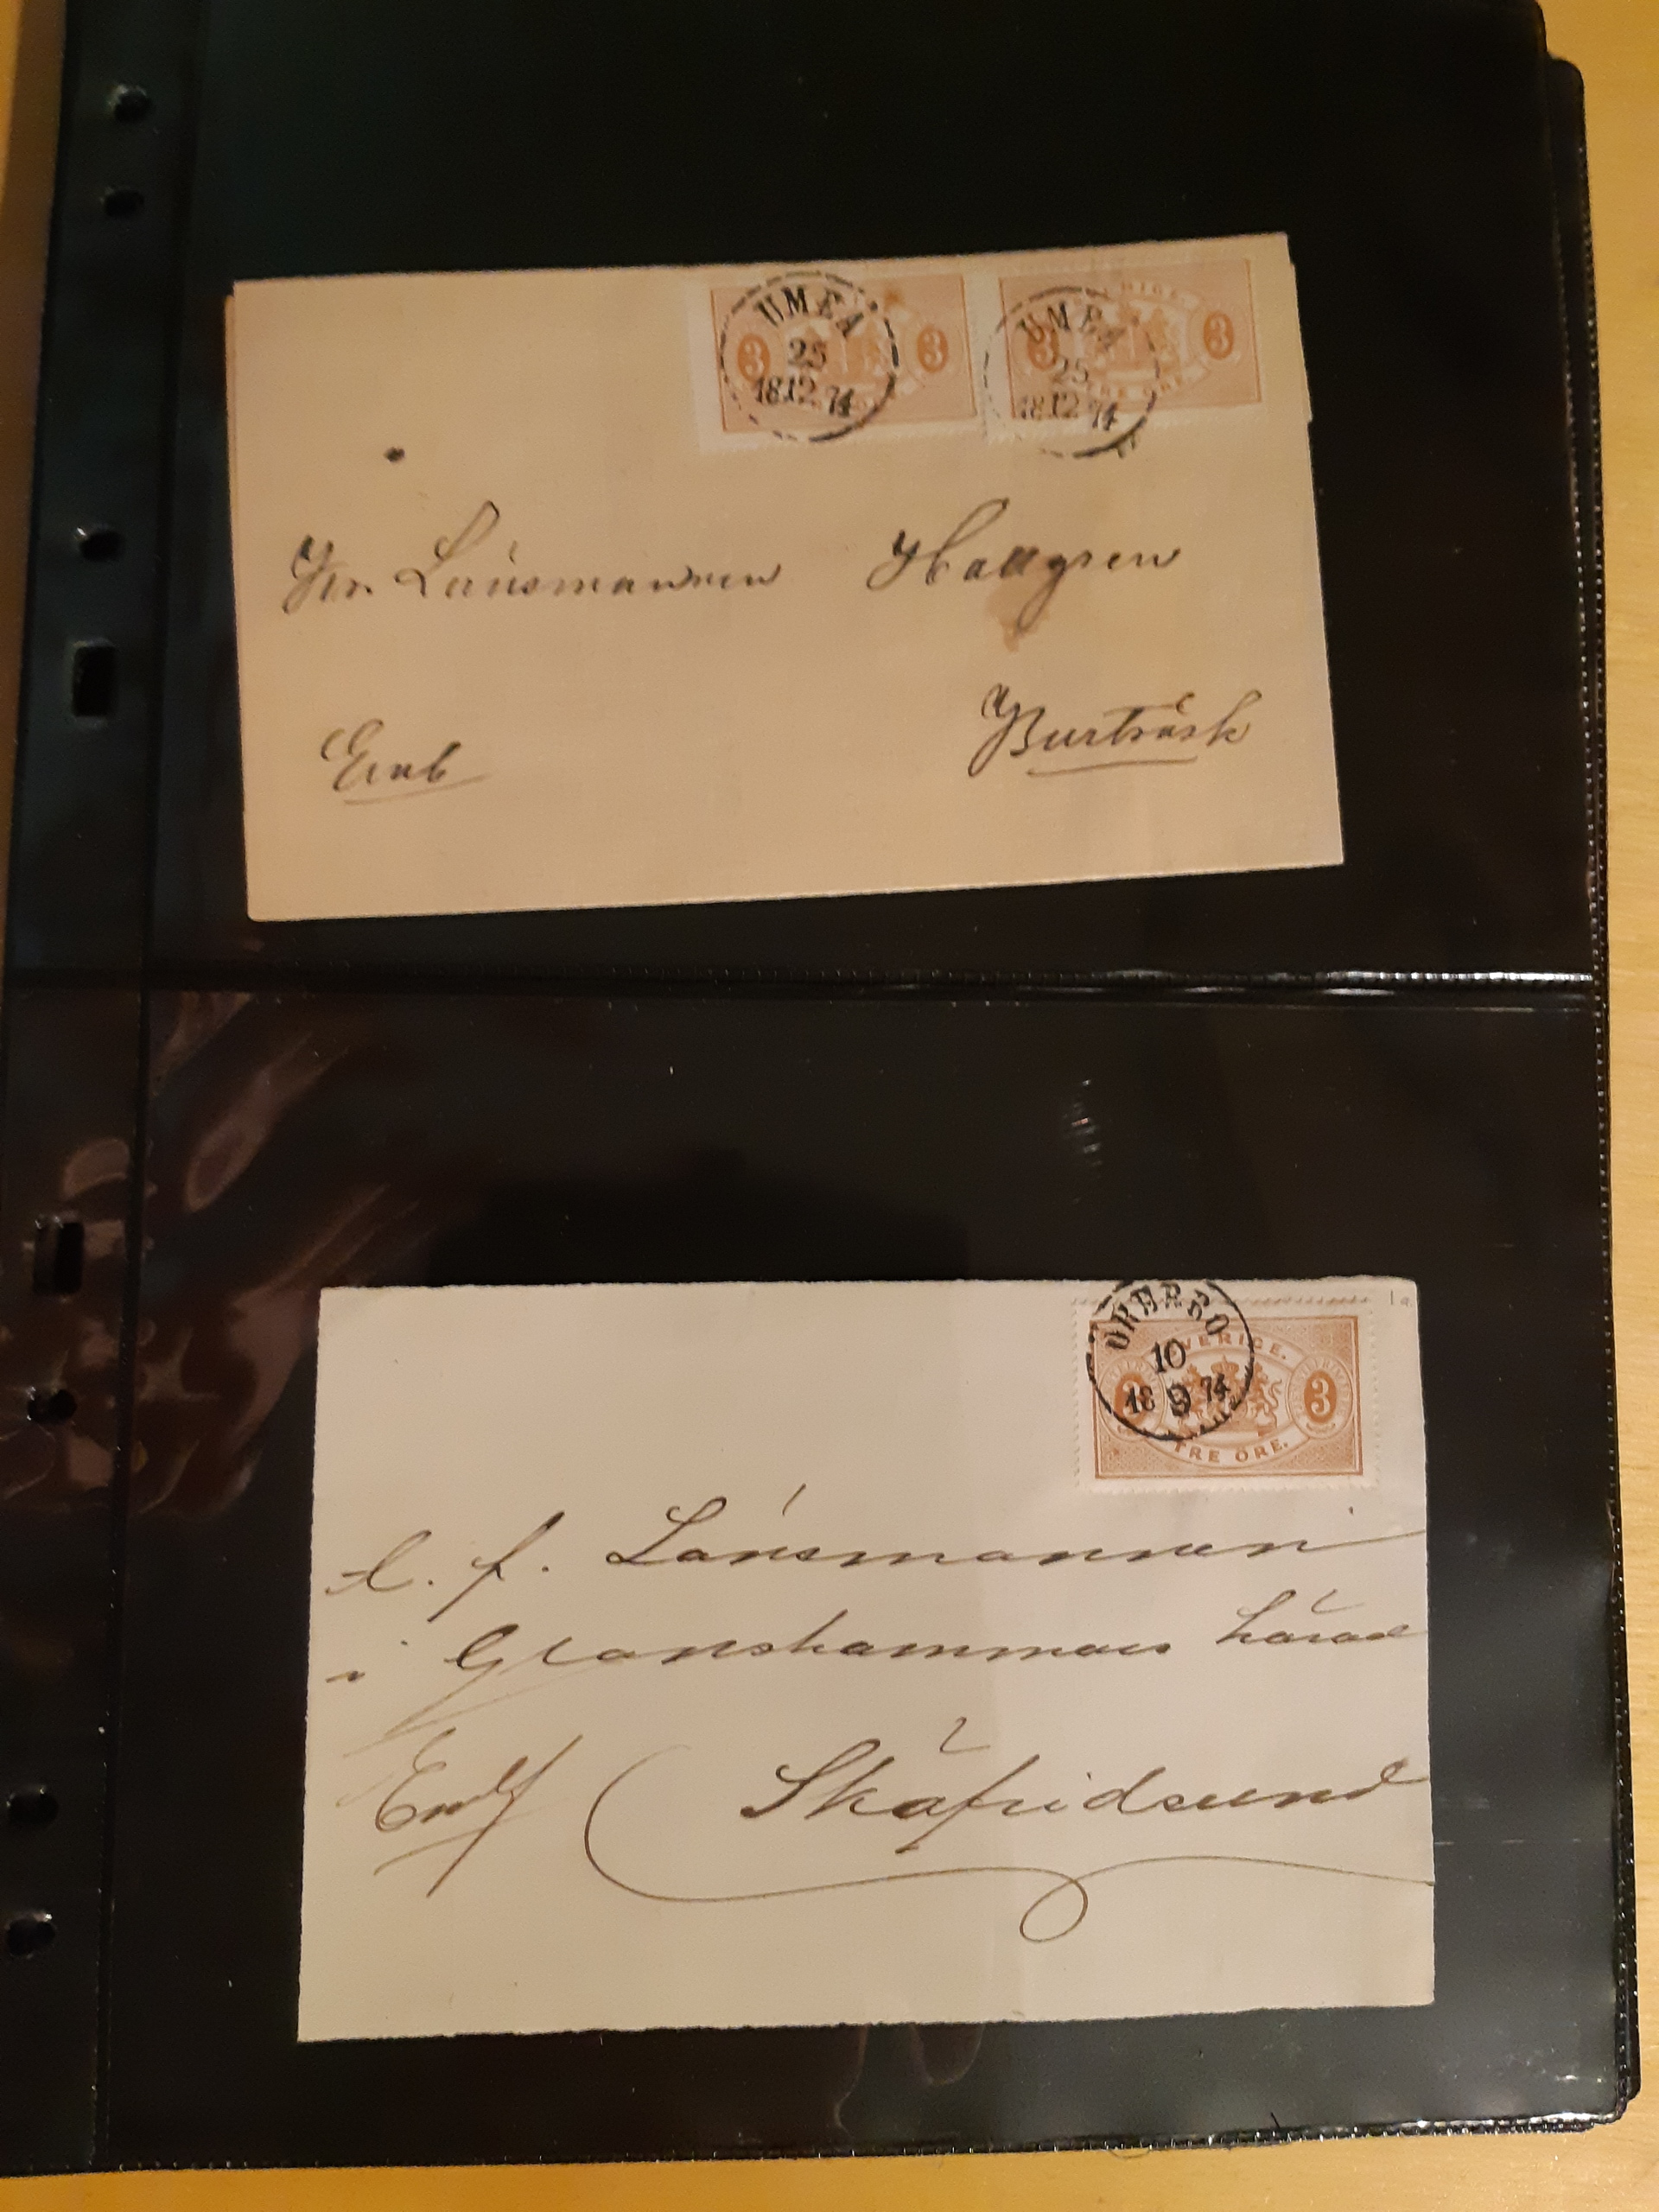 UMEÅ
25
1812 74
3
3
UMEÅ
25
1812 74
SVERIGE.
3
3
TRE ÖRE.
Hr. Länsmannen Hallgren
Burträsk
Emb
ÖREBRO
10
18 9 74
SVERIGE.
3
3
TRE ÖRE.
1a
t. f. Länsmannen
i Glanshammars härad
Skäfridsund